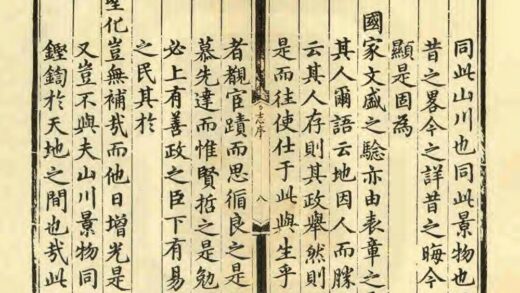 同此山川也同此景物也
昔之畧今之詳昔之晦今
顯是因為
國家文盛之驗亦由表章之
其人爾語云地因人而勝
云其人存則其政舉然則
是而往使仕于此與生乎
志序 八
者覩官蹟而思循良之是
慕先達而惟賢哲之是勉
必上有善政之臣下有易
之民其於
聖化豈無補哉而他日增光是
又豈不與夫山川景物同
鏗鍧於天地之間也哉此